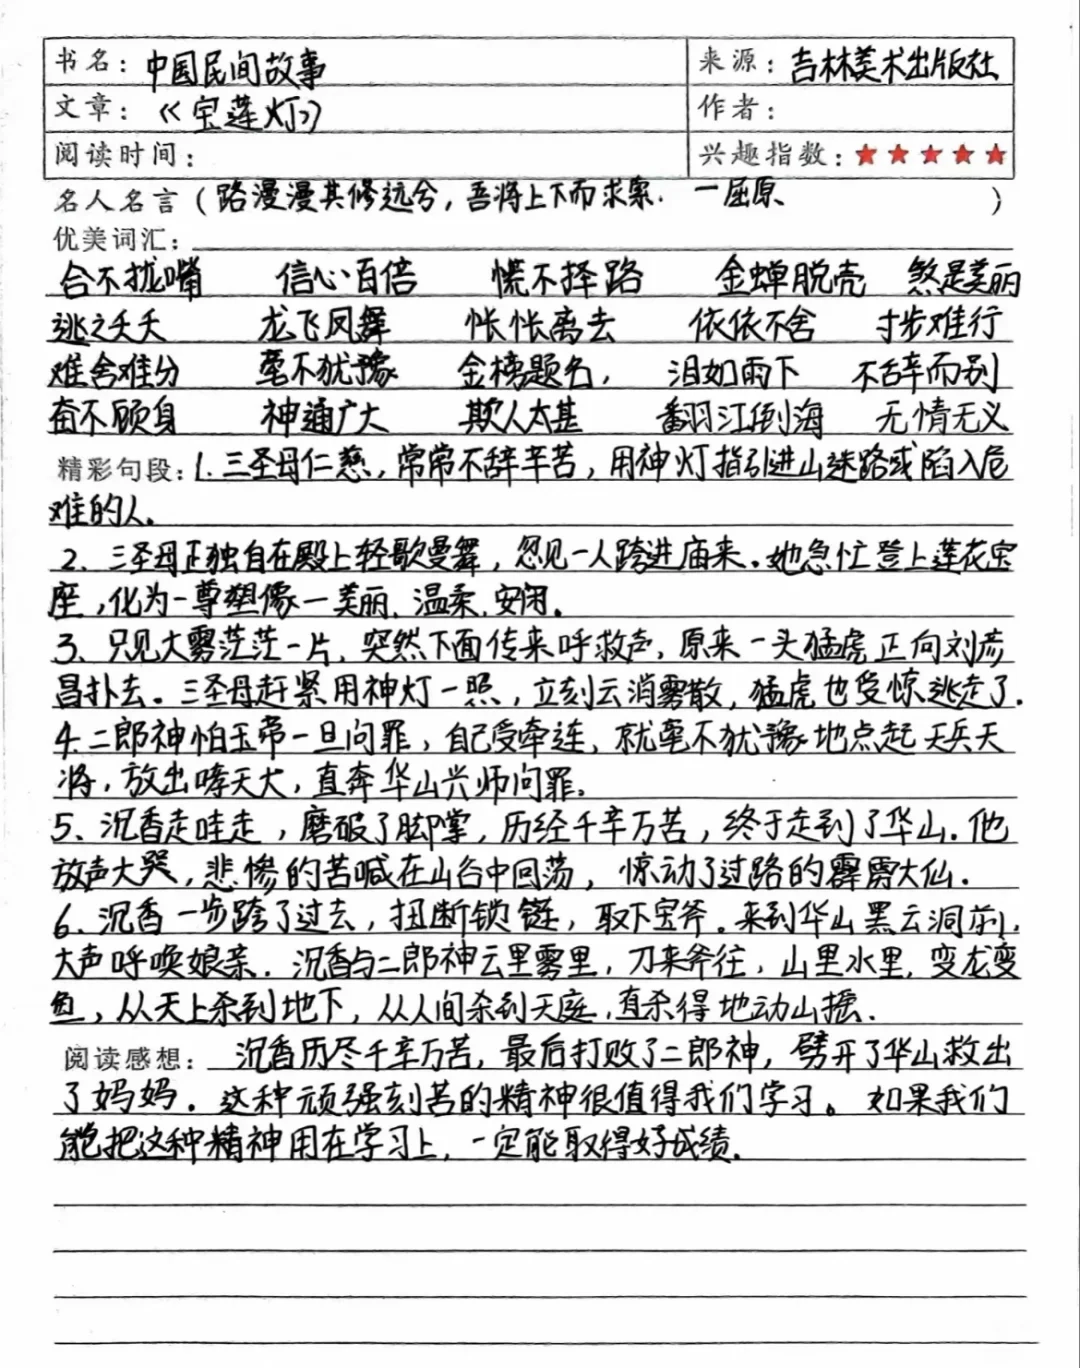 书名：中国民间故事 来源：吉林美术出版社
文章：《宝莲灯》 作者：
阅读时间： 兴趣指数：★★★★★
名人名言（路漫漫其修远兮，吾将上下而求索. 一屈原 ）
优美词汇：
合不拢嘴 信心百倍 慌不择路 金蝉脱壳 煞是美丽
逃之夭夭 龙飞凤舞 怅怅离去 依依不舍 寸步难行
难舍难分 毫不犹豫 金榜题名， 泪如雨下 不辞而别
奋不顾身 神通广大 欺人太甚 翻江倒海 无情无义
精彩句段：1.三圣母仁慈，常常不辞辛苦，用神灯指引进山迷路或陷入危
难的人。
2、三圣母正独自在殿上轻歌曼舞，忽见一人跨进庙来。她急忙登上莲花宝
座，化为一尊塑像一美丽、温柔、安闲。
3、只见大雾茫茫一片，突然下面传来呼救声，原来一头猛虎正向刘彦
昌扑去。三圣母赶紧用神灯一照，立刻云消雾散，猛虎也受惊逃走了.
4.二郎神怕玉帝一旦问罪，自己受牵连，就毫不犹豫地点起天兵天
将，放出哮天犬，直奔华山兴师问罪。
5、沉香走哇走，磨破了脚掌，历经千辛万苦，终于走到了华山.他
放声大哭，悲惨的苦喊在山谷中回荡，惊动了过路的霹雳大仙.
6、沉香一步跨了过去，扭断锁链，取下宝斧。来到华山黑云洞前，
大声呼唤娘亲.沉香与二郎神云里雾里，刀来斧往，山里水里，变龙变
鱼，从天上杀到地下，从人间杀到天庭，直杀得地动山摇.
阅读感想：沉香历尽千辛万苦，最后打败了二郎神，劈开了华山救出
了妈妈。这种顽强刻苦的精神很值得我们学习。如果我们
能把这种精神用在学习上，一定能取得好成绩.